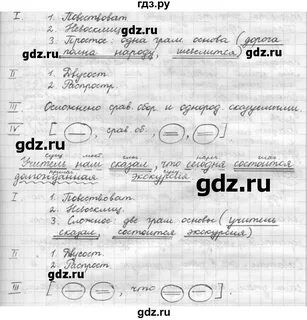 гдз.ру
I 1. Повествоват.
2. Невосклиц.
3. Простое: одна грам. основа (дорога
полна народу, шевелится)
II 1. Двусост.
2. Распростр.
III Осложнено срав. обор. и однород. сказуемыми.
IV [ — , срав. об. , = , = ]
сущ. мест. глаг. нареч. глаг.
Учитель нам сказал, что сегодня состоится
прилаг. сущ.
долгожданная экскурсия
I 1. Повествоват.
2. Невосклиц.
3. Сложное: две грам. основы (учитель
сказал, состоится экскурсия)
II 1. Двусост.
2. Распрост.
III [ — = , что = — ]
gdz.ru
gdz.ru
gdz.ru
gdz.ru
gdz.ru
gdz.ru